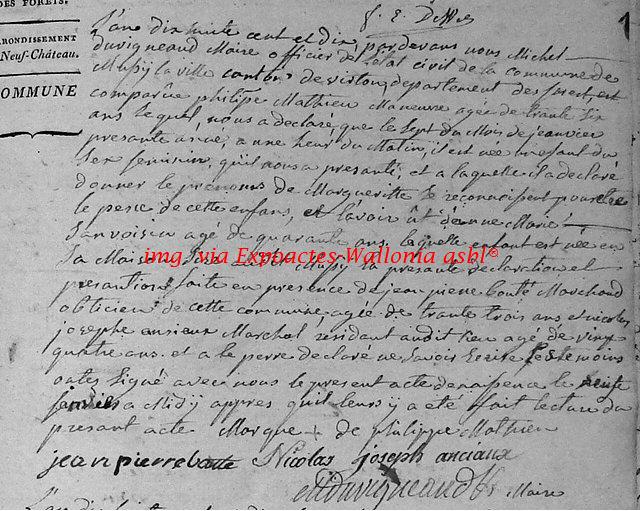 DES FORÊTS.
ARRONDISSEMENT
Neuf-Château.
COMMUNE
L'an dix huite cent et dix, par devans nous Michel
duvigneaud Maire officier de l'etat civil de la commune de
Mussy la ville canton de virton, departement des forest, est
comparüe philipe Mathieu Maneuvre agée de trante six
ans lequel, nous a declaré, que le sept du Mois de jeanvier
presante année, a une heur du Matin, il est née un enfant du
sex feminin, qu'il nous a presanté, et a laquelle il a declaré
donner le prénoms de Margueritte se reconnoissent pour etre
le pere de cette enfans, et l'avoir üt de Marie
Janvoisin agé de quarante ans, lequelle enfant est née en
sa Maison Mussy la presante declaration et
presantion faite en presence de jean piere bouté Marchand
de cette commune, agée de trante trois ans et nicolas
josephe ensieux Marchal residant audit lieu agé de vingt
quatre ans. et a le perre declaré ne savoir Ecrire les temoins
ontes signé avec nous le present acte de naissence le
a Midy appres qu'il leurs y a eté fait lecture du
presant acte Marque + de philippe Mathieu
jean pierre bouté Nicolas joseph anciaux
duvigneaud Maire
img. via Expoactes-Wallonia asbl®